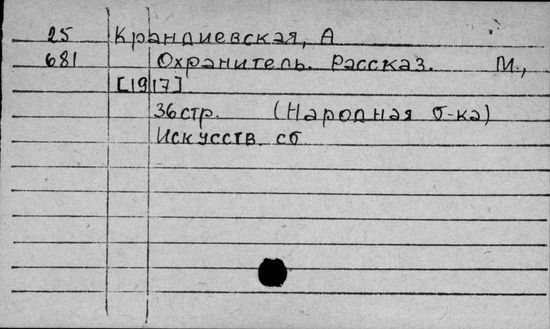 25 Крандиевская, А
681 Охранитель. Рассказ. М.,
[1917]
36 стр. (Народная б-ка)
Искусств. сб